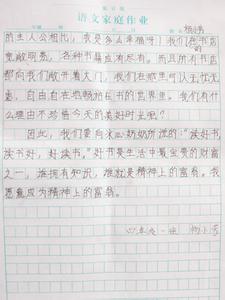 语文家庭作业
的主人公相比，我是多么幸福呀！我们在书店
宽敞明亮，各种书籍应有尽有。而且所有书店
都向我们敞开着大门，我们在那里可以无忧无
虑，自由自在地畅游在书的世界里。我们有什
么理由不珍惜今天的美好时光呢？
因此，我们要向冰心奶奶所说的："读好书，
读书好，好读书。"好书是生活中最宝贵的财富
之一，谁拥有知识，谁就是精神上的富翁。我
愿意成为精神上的富翁。